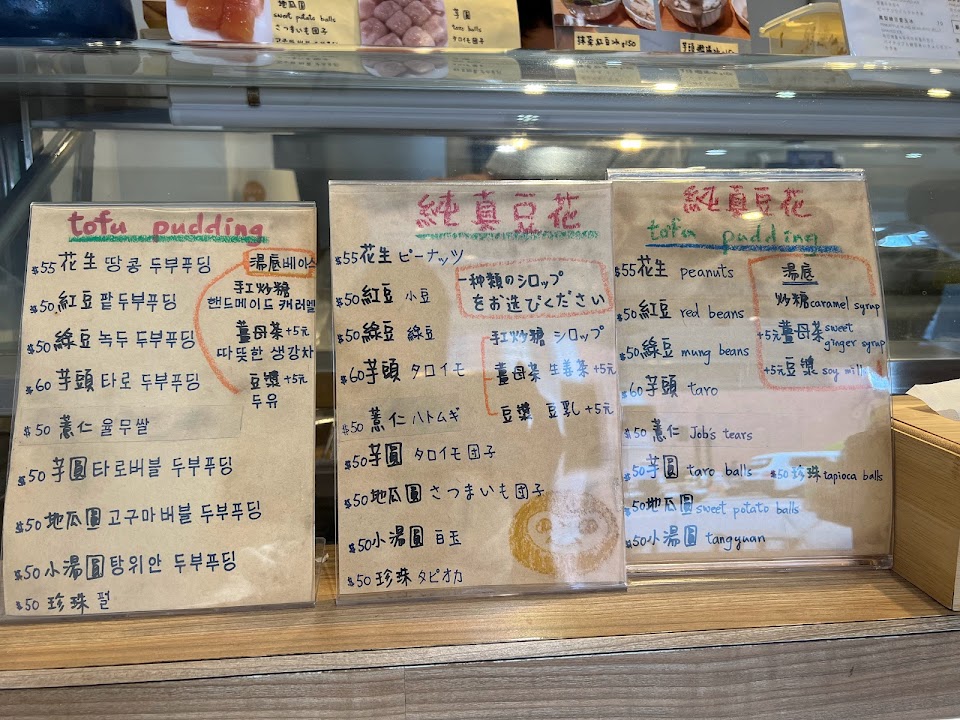 地瓜圓
sweet potato balls
さつまいも団子
芋圓
taro balls
タロイモ団子
tofu pudding
$55 花生 땅콩 두부푸딩
$50 紅豆 팥두부푸딩
$50 綠豆 녹두 두부푸딩
$60 芋頭 타로 두부푸딩
$50 薏仁 율무쌀
$50 芋圓 타로버블 두부푸딩
$50 地瓜圓 고구마버블 두부푸딩
$50 小湯圓 탕위안 두부푸딩
$50 珍珠 펄
湯底베이스
手炒糖
핸드메이드 캐러멜
薑母茶+5元
따뜻한 생강차
豆漿+5元
두유
純真豆花
$55 花生 ピーナッツ
$50 紅豆 小豆
$50 綠豆 綠豆
$60 芋頭 タロイモ
$50 薏仁 ハトムギ
$50 芋圓 タロイモ団子
$50 地瓜圓 さつまいも団子
$50 小湯圓 白玉
$50 珍珠 タピオカ
一種類のシロップ
をお選びください
手炒糖 シロップ
薑母茶 生姜茶+5元
豆漿 豆乳 +5元
純真豆花
tofu pudding
$55 花生 peanuts
$50 紅豆 red beans
$50 綠豆 mung beans
$60 芋頭 taro
$50 薏仁 Job's tears
$50 芋圓 taro balls
$50 珍珠 tapioca balls
$50 地瓜圓 sweet potato balls
$50 小湯圓 tangyuan
湯底
炒糖 caramel syrup
+5元 薑母茶 sweet ginger syrup
+5元 豆漿 soy milk